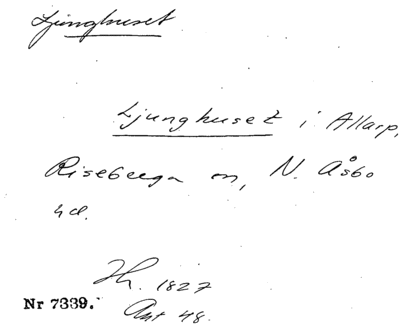 Ljunghuset
Ljunghuset i Allarp,
Riseberga sn, N. Åsbo
hd.
Th. 1827
Nr 7339.
Ant 48.